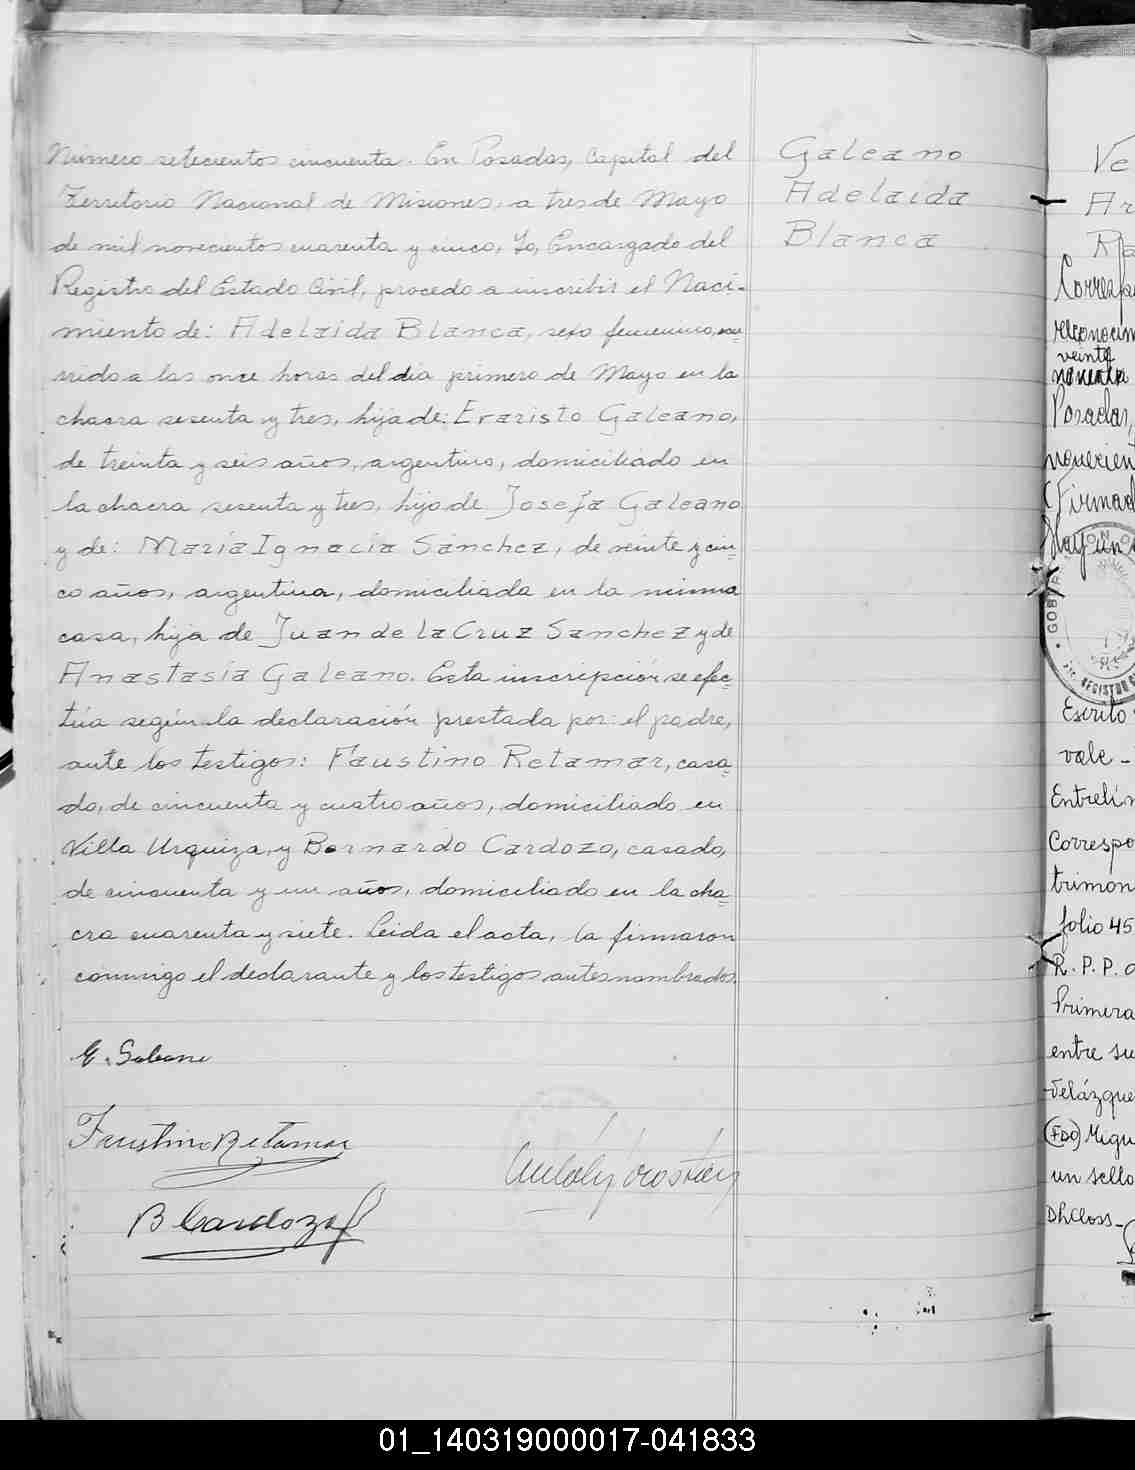 Número setecientos cincuenta. En Posadas, Capital del
Territorio Nacional de Misiones, a tres de Mayo
de mil novecientos cuarenta y cinco, Yo, Encargado del
Registro del Estado Civil, procedo a inscribir el Naci-
miento de: Adelaida Blanca, sexo femenino, ocu-
rrido a las once horas del dia primero de Mayo en la
chacra sesenta y tres, hija de: Evaristo Galeano,
de treinta y seis años, argentino, domiciliado en
la chacra sesenta y tres, hijo de Josefa Galeano
y de: María Ignacia Sánchez, de veinte y cin-
co años, argentina, domiciliada en la misma
casa, hija de Juan de la Cruz Sanchez y de
Anastasia Galeano. Esta inscripción se efec-
túa según la declaración prestada por: el padre,
ante los testigos: Faustino Retamar, casa-
do, de cincuenta y cuatro años, domiciliado en
Villa Urquiza, y Bernardo Cardozo, casado,
de cincuenta y un años, domiciliado en la cha-
cra cuarenta y siete. Leida el acta, la firmaron
conmigo el declarante y los testigos antes nombrados.
E. Galeano
Faustino Retamar
B Cardozo
Galeano
Adelaida
Blanca
Ve
Ar
Ra
Corresp
reconocim
veinte
noventa
Posadas,
(Firmad
Hay un
REGISTRO
Escrito
vale -
Entrelín
Correspo
trimon
folio 45
R. P. P.
Primera
entre su
Velázque
(FDO) Migu
un sello
01_140319000017-041833